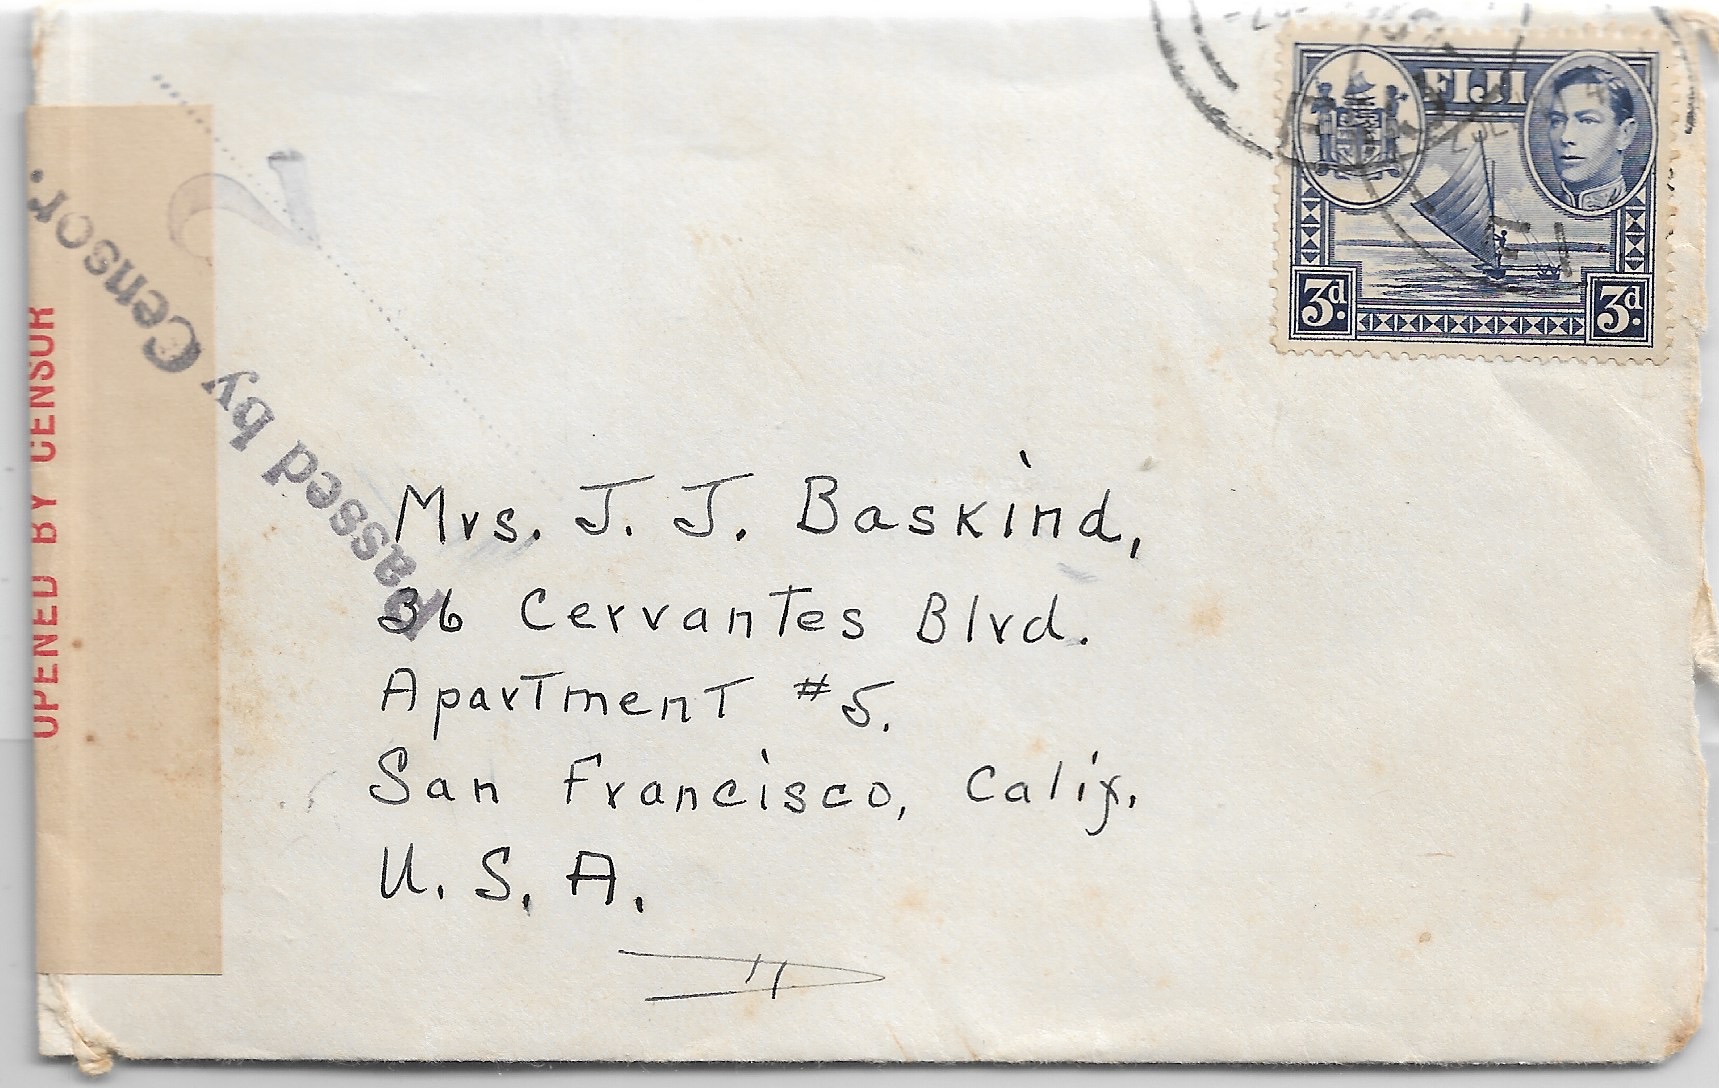 FIJI
3d. 3d.
OPENED BY CENSOR
Passed by Censor.
Mrs. J. J. Baskind,
36 Cervantes Blvd.
Apartment #5.
San Francisco, Calif.
U. S. A.